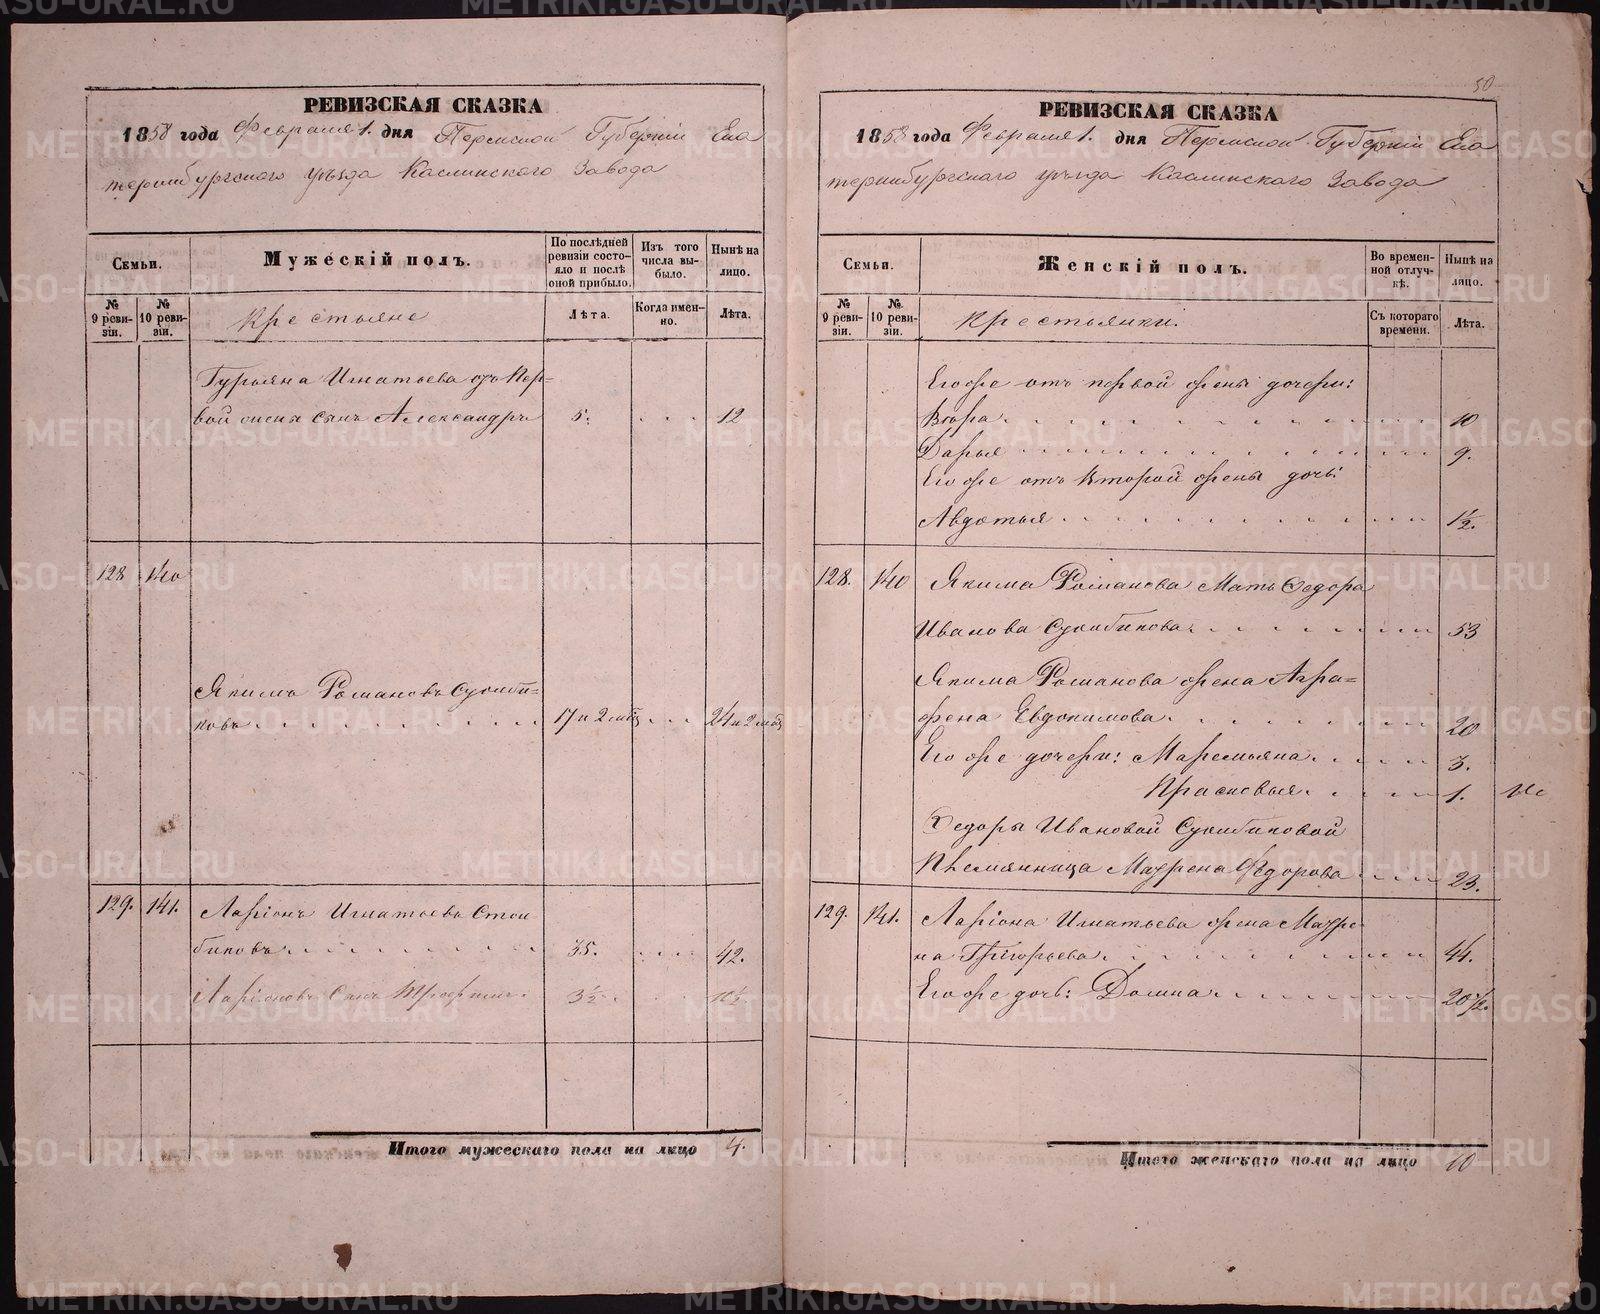 РЕВИЗСКАЯ СКАЗКА
1858 года Февраля 1. дня Пермской Губерніи Ека
теринбургскаго уѣзда Каслинскаго Завода
Семьи.
Мужескій полъ.
По послѣдней ревизіи состояло и послѣ оной прибыло.
Изъ того числа выбыло.
Нынѣ на лицо.
№ 9 ревизіи.
№ 10 ревизіи.
Крестьяне
Лѣта.
Когда именно.
Лѣта.
Гурьяна Игнатьева отъ пер=
вой жены сынъ Александръ 5. 12
128 140
Якимъ Романовъ
ковъ 17 и 2 мѣс 24 и 2 мѣс
129. 141. Ларіонъ Игнатьевъ
биковъ 35. 42.
Ларіоновъ Сынъ Трофимъ 3½ 10½
Итого мужескаго пола на лицо 4.
50
РЕВИЗСКАЯ СКАЗКА
1858 года Февраля 1. дня Пермской Губерніи Ека
теринбургскаго уѣзда Каслинскаго Завода
Семьи.
Женскій полъ.
Во временной отлучкѣ.
Нынѣ на лицо.
№ 9 ревизіи.
№ 10 ревизіи.
Крестьянки.
Съ котораго времени.
Лѣта.
Его же отъ первой жены дочери:
Вѣра 10
Дарья 9.
Его же отъ второй жены дочь:
Авдотья 1½.
128. 140 Якима Романова Мать Федора
Иванова 53
Якима Романова жена Агра=
фена Евдокимова 20
Его же дочери: Маремьяна 3.
Прасковья 1.
Федоры Ивановой
Племянница Маурена Федорова 23.
129. 141. Ларіона Игнатьева жена Мавре
на Григорьева 44.
Его же дочь: Домна 20½.
Итого женскаго пола на лицо 10
METRIKI.GASO-URAL.RU